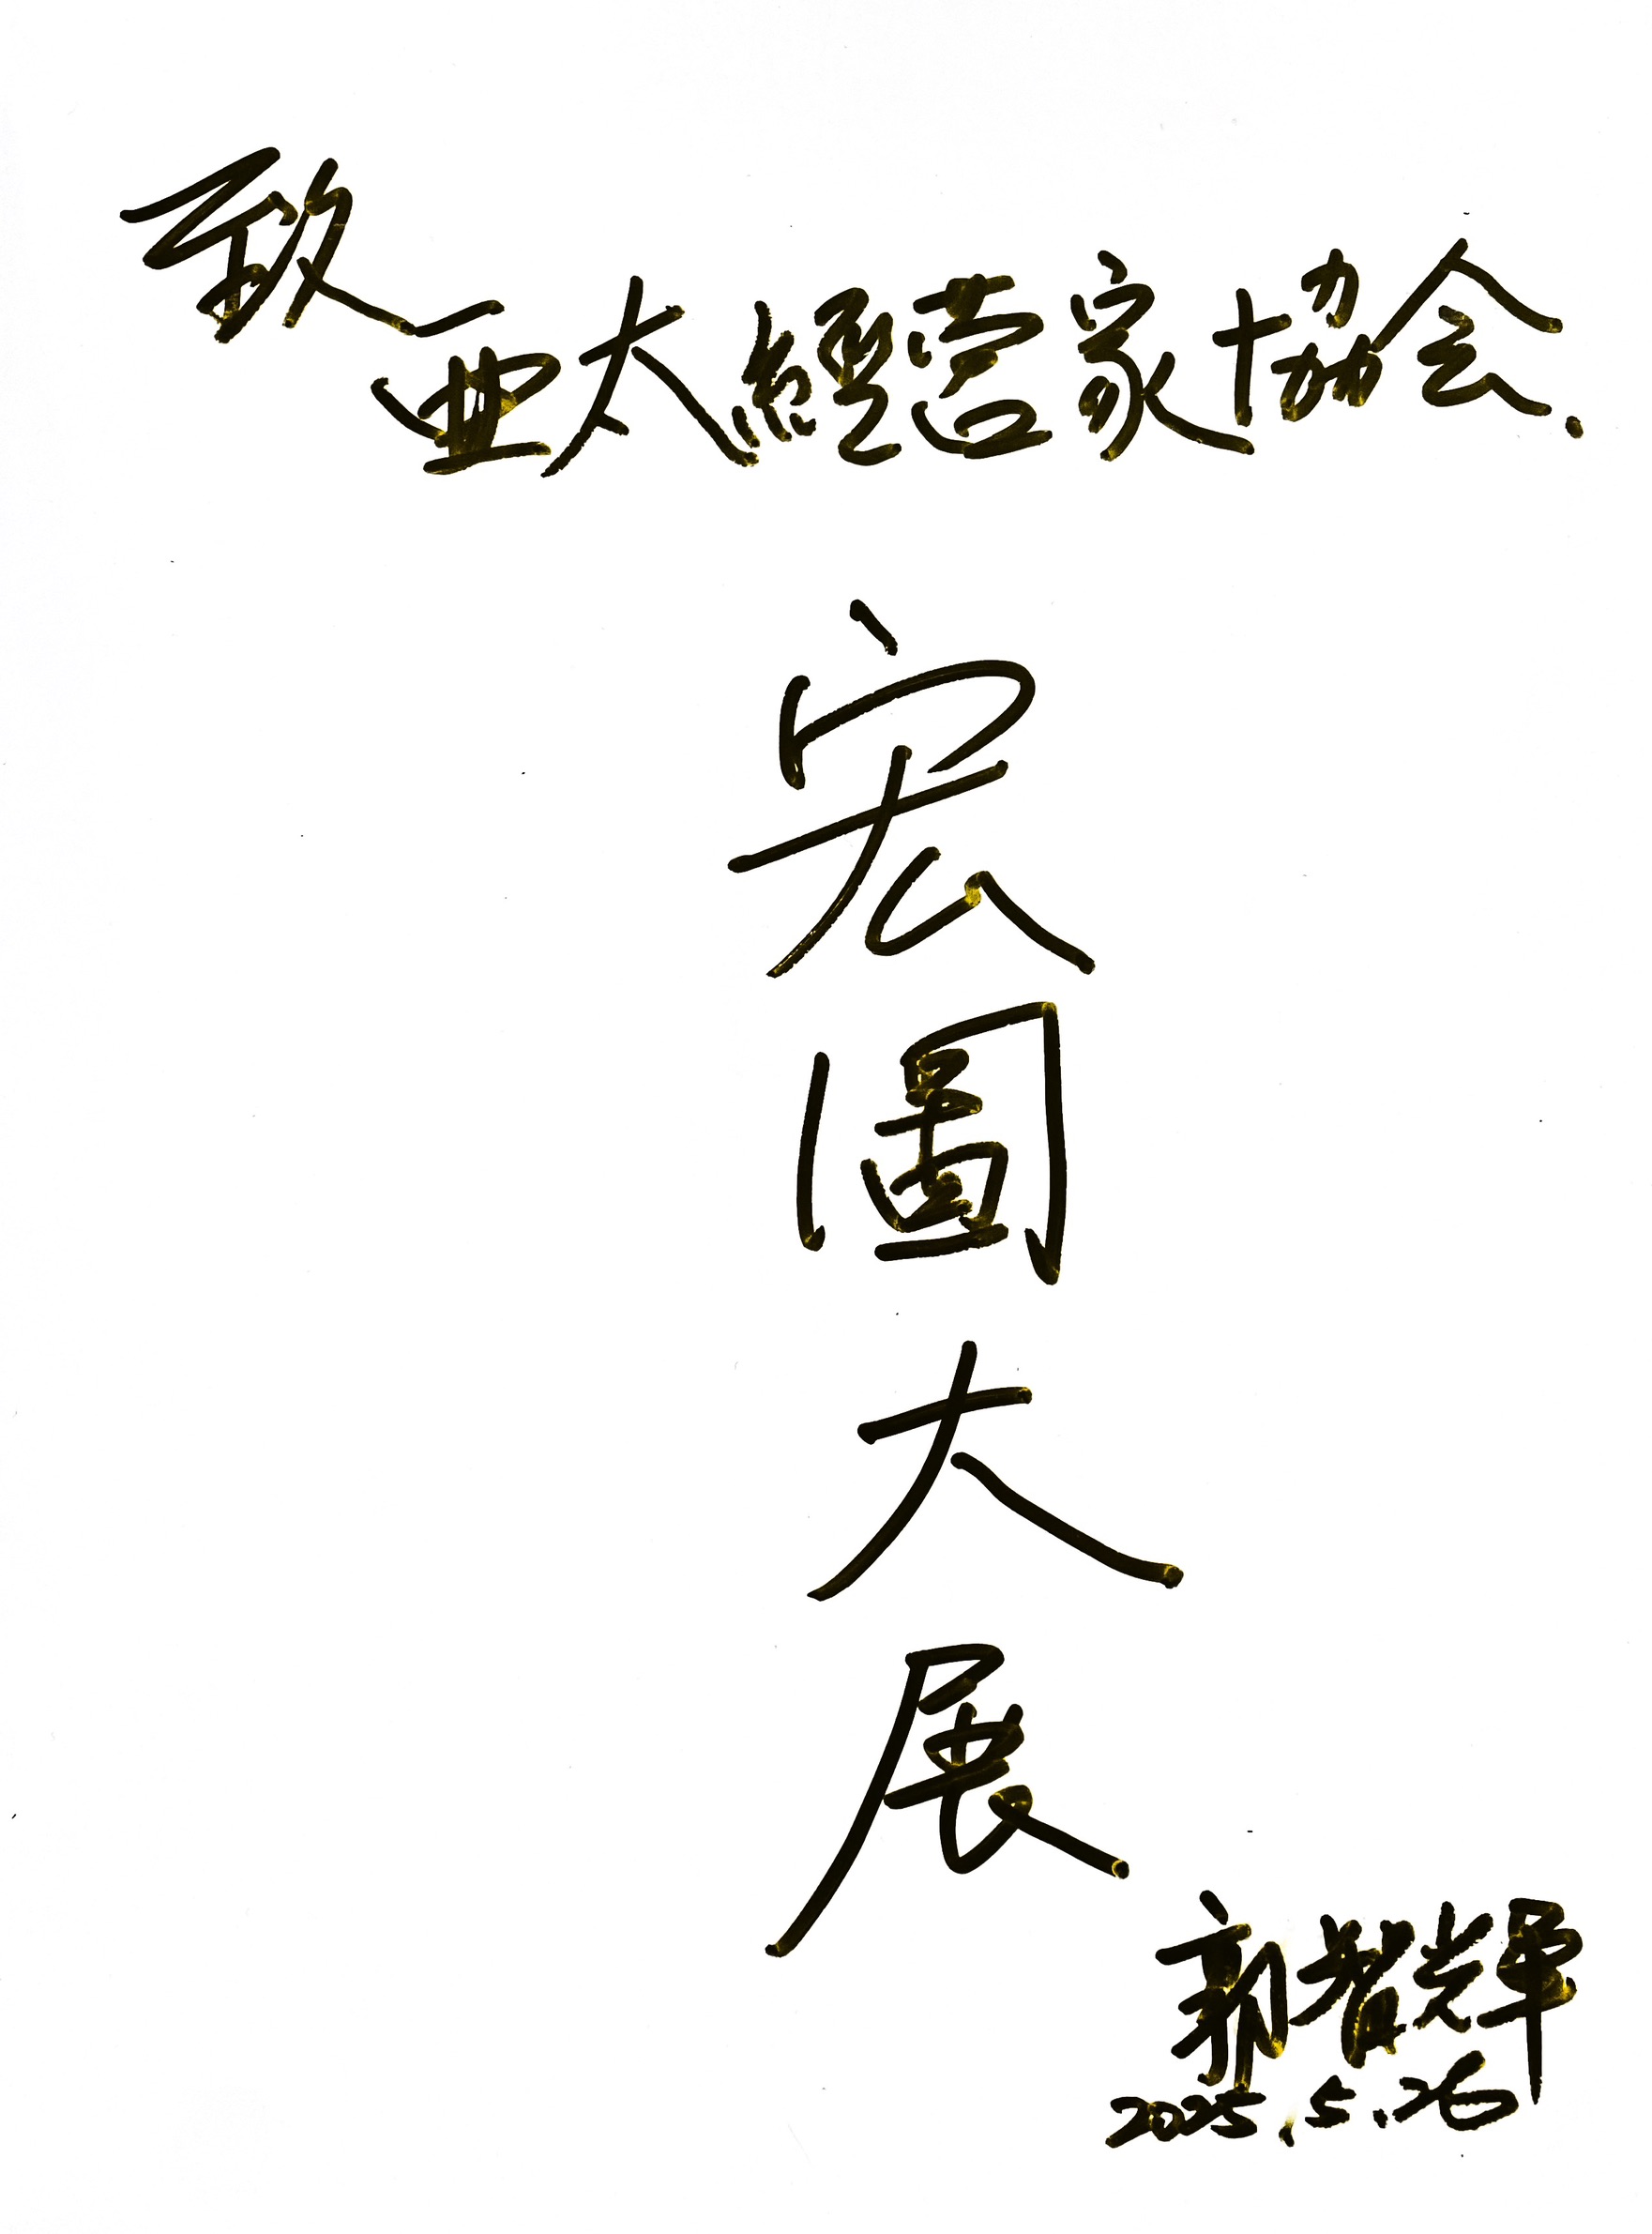 致亚太經营家協会.
宏
圖
大
展
郭智輝
2025.5.26